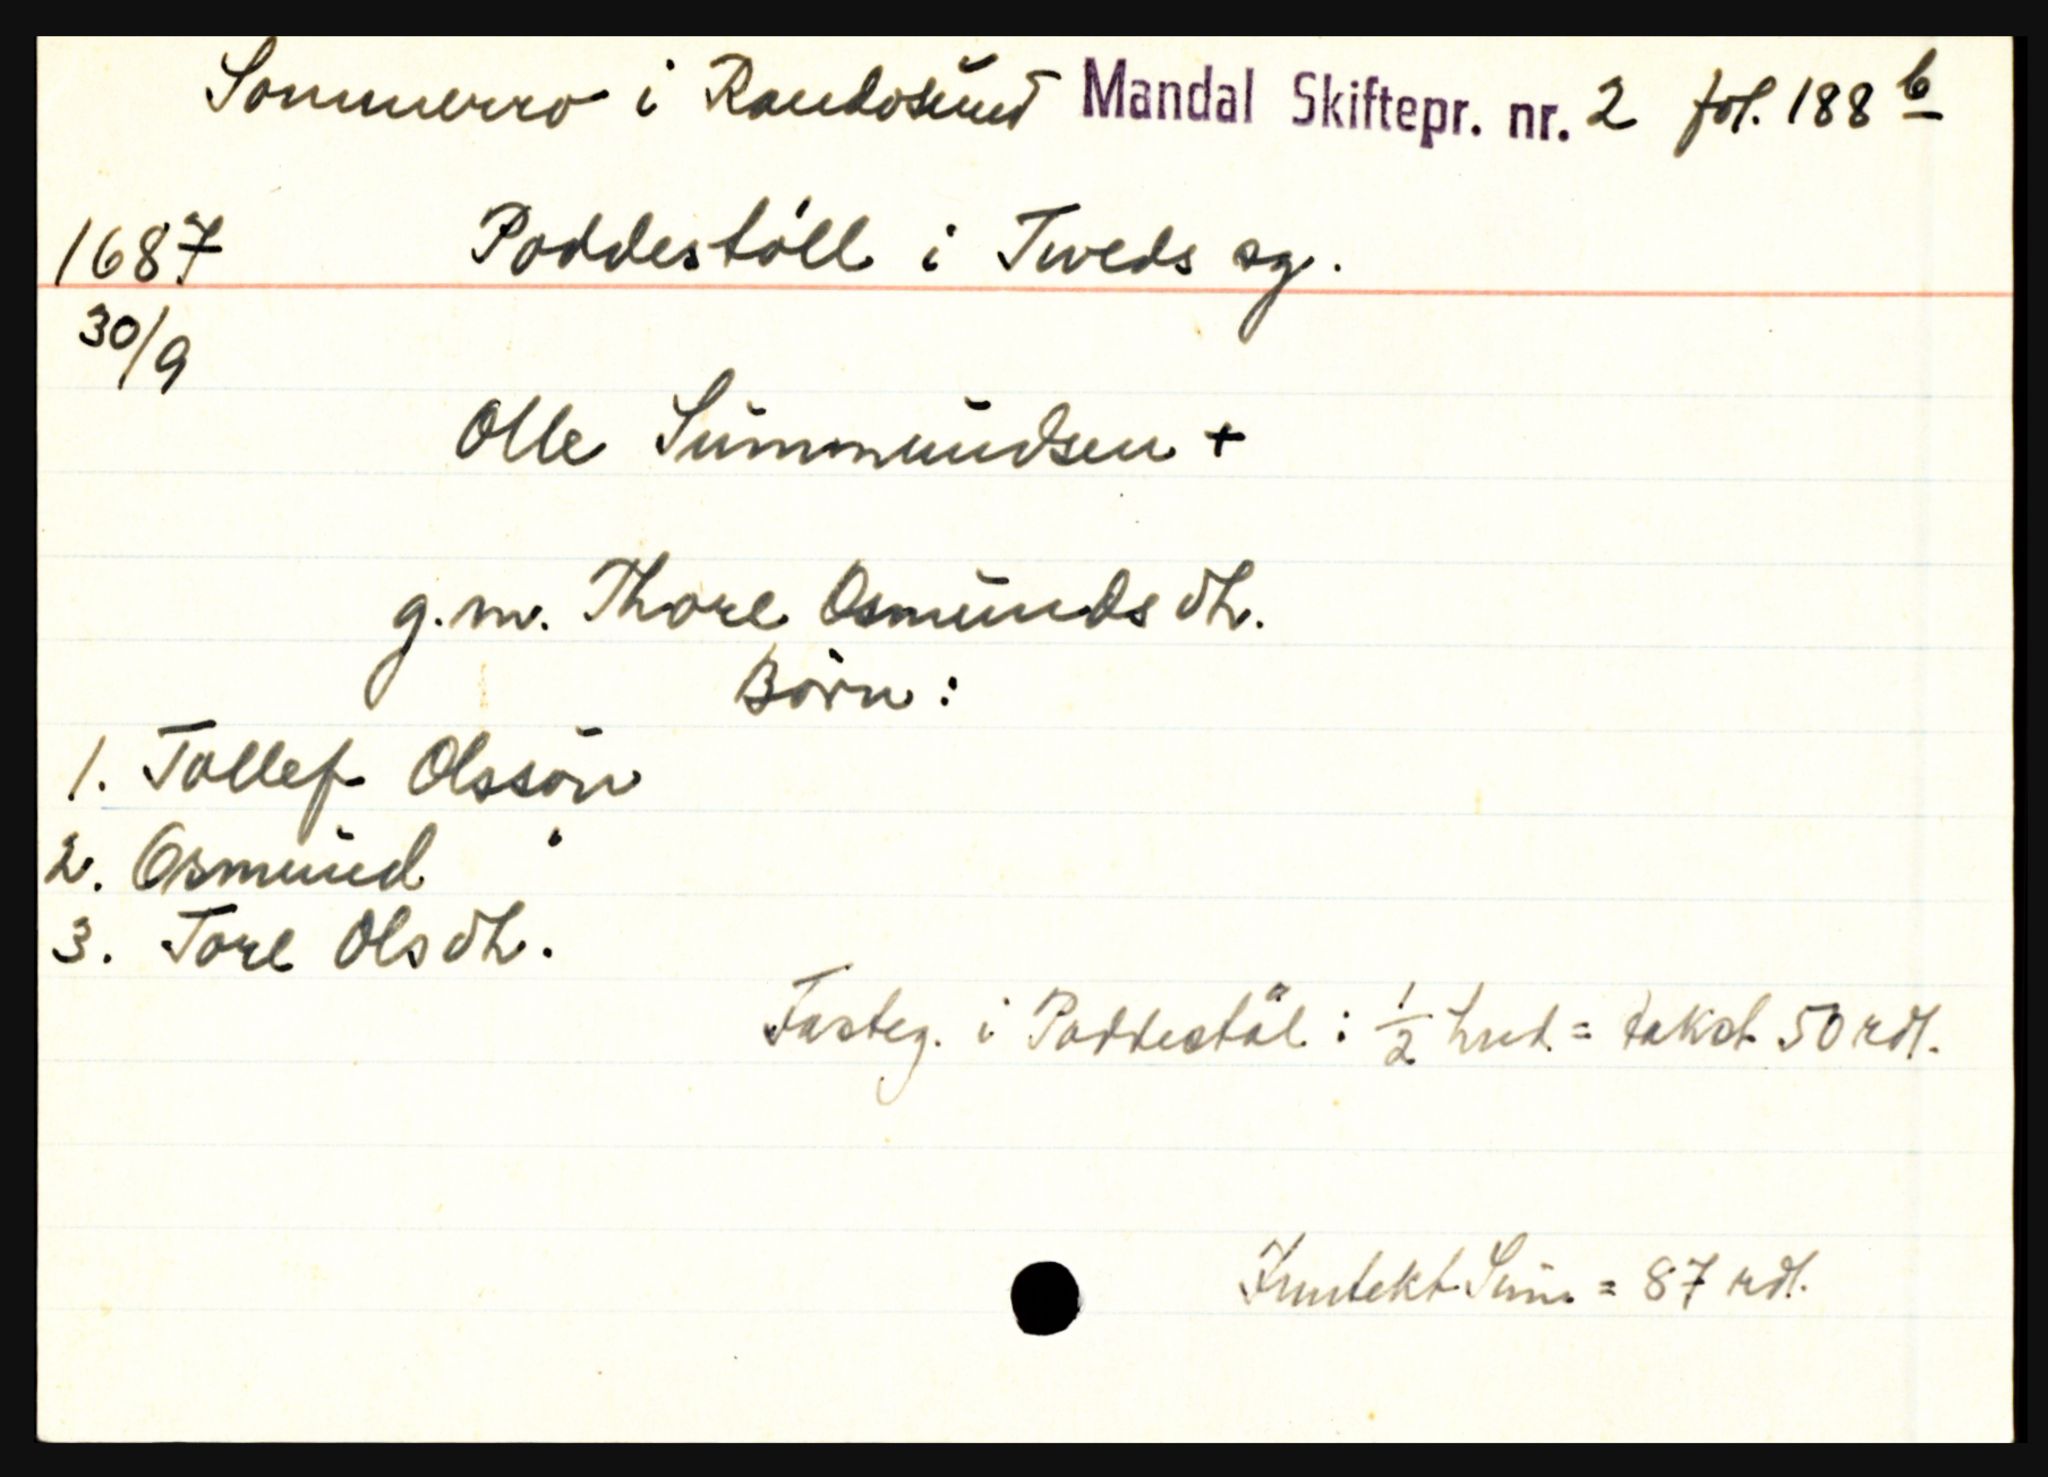 Sommerro i Randosund Mandal Skiftepr. nr. 2 fol. 188 b
1687 Poddestöll i Tweds sg.
30/9
Olle Summundsen +
g.m. Thore Osmunds dt.
Börn:
1. Tollef Olssön
2. Osmund "
3. Tore Ols dt.
Fasteg. i Poddestöl : 1/2 hud = takst 50 rdl.
Inntekt Sum = 87 rdl.